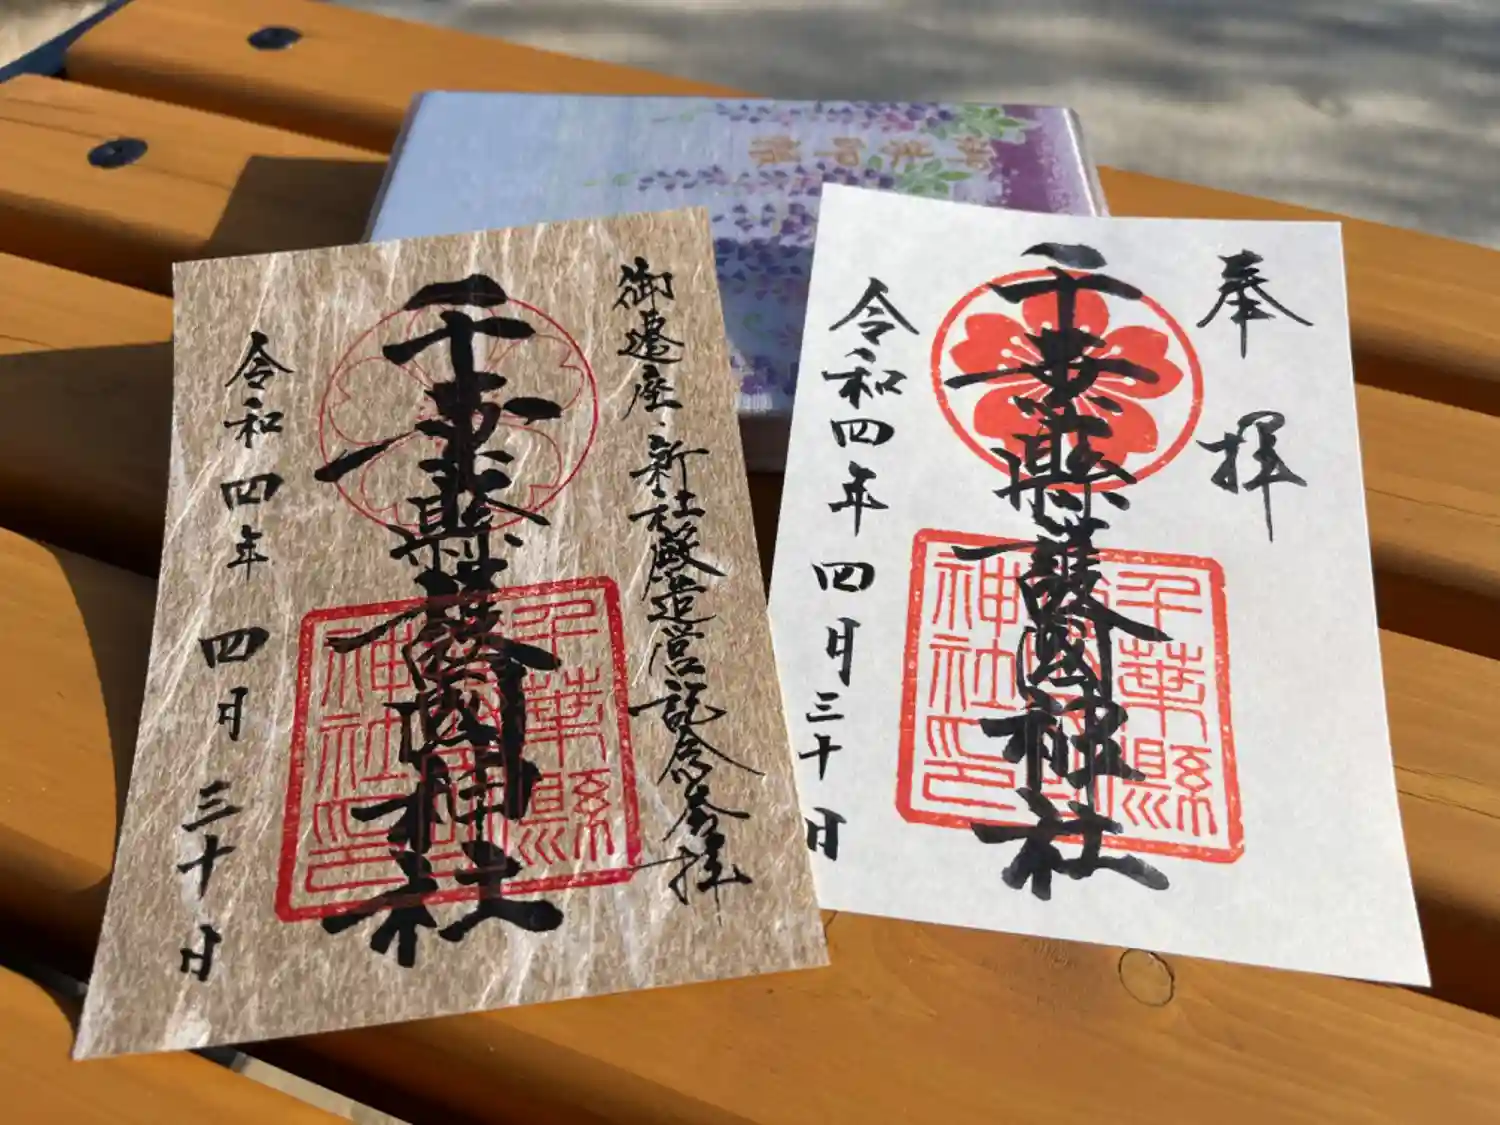 御遷座・新社殿造営記念参拝
千葉縣護國神社
千葉縣護國神社印
令和四年四月三十日
奉拝
千葉縣護國神社
千葉縣護國神社印
令和四年四月三十日